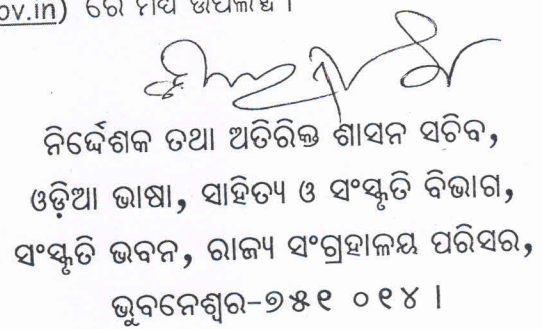 ov.in) ରେ ମଧ୍ୟ ଉପଲବ୍ଧ ।
ନିର୍ଦ୍ଦେଶକ ତଥା ଅତିରିକ୍ତ ଶାସନ ସଚିବ,
ଓଡ଼ିଆ ଭାଷା, ସାହିତ୍ୟ ଓ ସଂସ୍କୃତି ବିଭାଗ,
ସଂସ୍କୃତି ଭବନ, ରାଜ୍ୟ ସଂଗ୍ରହାଳୟ ପରିସର,
ଭୁବନେଶ୍ୱର-୭୫୧ ୦୧୪ ।